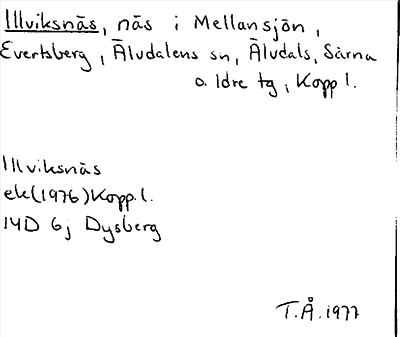 Illviksnäs, näs i Mellansjön,
Evertsberg, Älvdalens sn, Älvdals, Särna
o. Idre tg, Kopp l.
Illviksnäs
ek(1976)Kopp.l.
14D 6j Dysberg
T.Å.1977